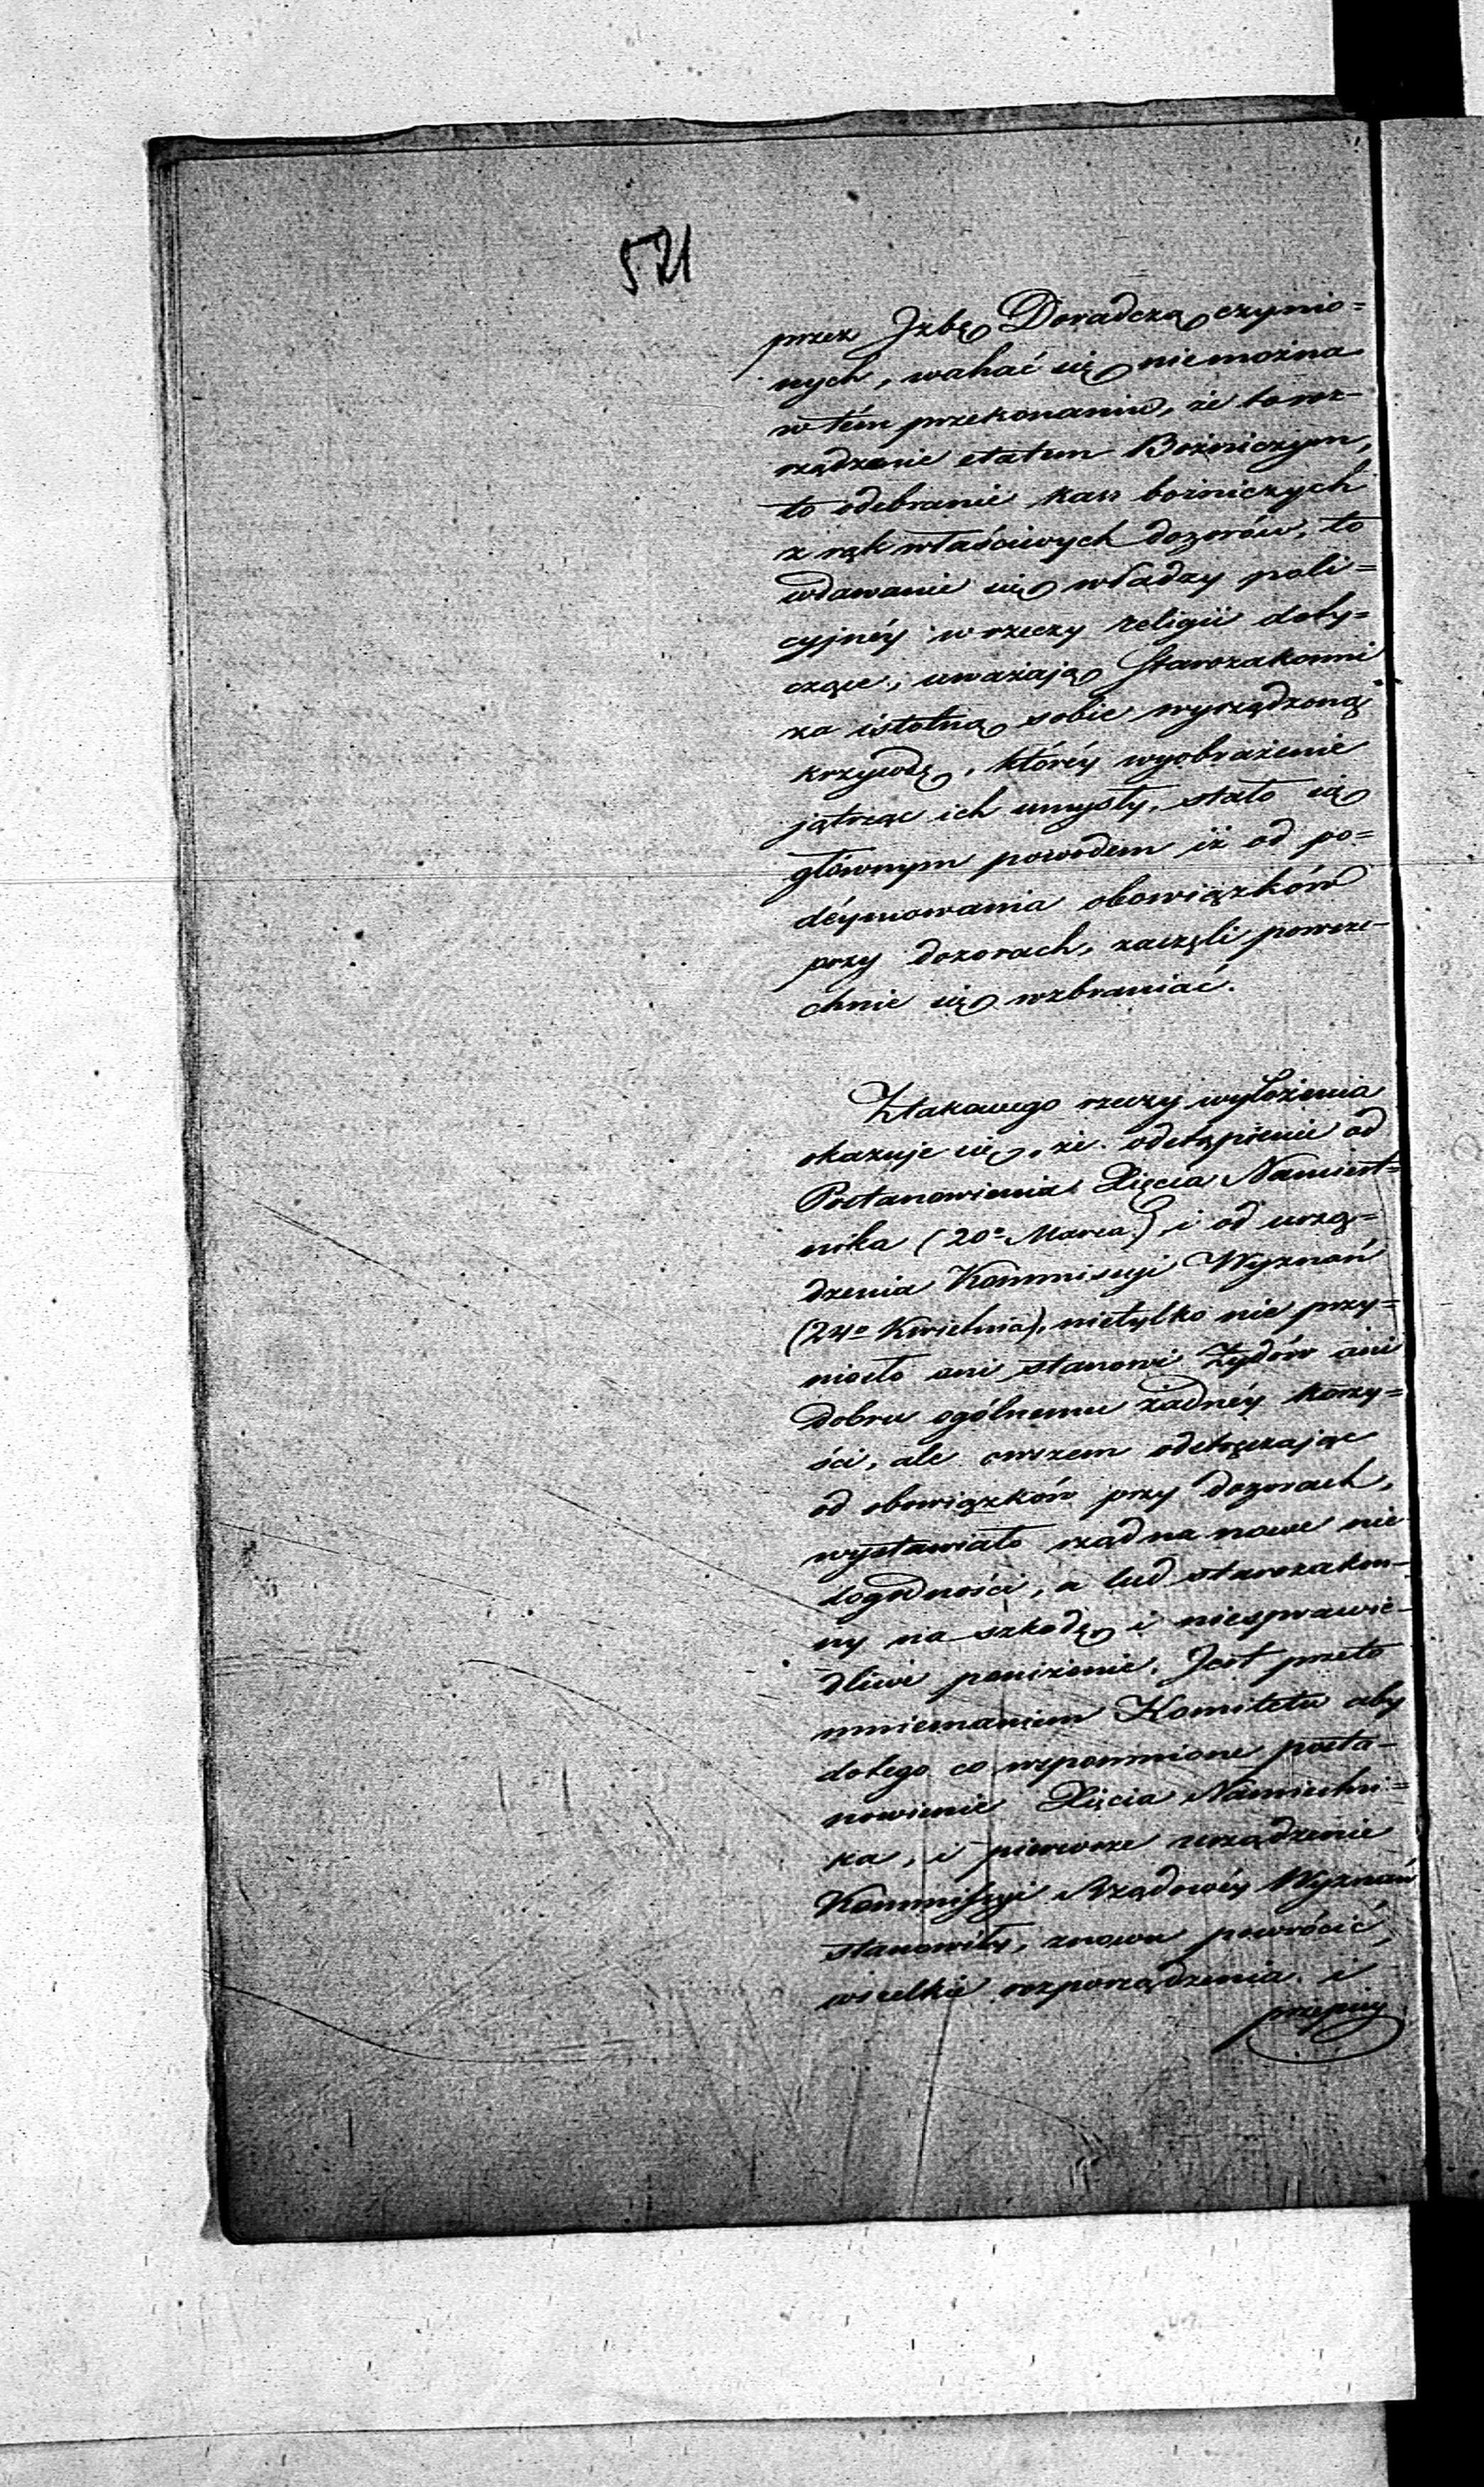 521
przez Jzbę Doradczą czynio=
nych, wahać się niemożna
w tém przekonaniu, że to roz-
rządzenie etatem Bożniczym,
to odebranie kass bożniczych
z rąk właściwych dozorów, to
wdawanie się władzy poli=
cyjnéy w rzeczy religii doty=
czące, uważają Starozakonni
za istotną sobie wyrządzoną
krzywdę, któréy wyobrażenie
jątrząc ich umysły, stało się
głównym powodem iż od po=
déymowania obowiązków
przy dozorach, zaczęli powsze-
chnie się wzbraniać.
Ztakowego rzeczy wyłożenia
okazuje się, że odstąpienie od
Postanowienia Xięcia Namiest=
nika (20º Marca), i od urzą=
dzenia Kommissyi Wyznań
(24º Kwietnia), nietylko nie przy=
niosło ani stanowi Żydów ani
dobru ogólnemu żadnéy korzy=
ści, ale owszem odstręczając
od obowiązków przy dozorach,
wystawiało rząd na nowe nie
dogodności, a lud starozakon-
ny na szkodę i niesprawie-
dliwe poniżenie. Jest przeto
mniemaniem Komitetu aby
dotego co wspomnione posta-
nowienie Xięcia Namiestni=
ka, i pierwsze urządzenie
Kommissyi Rządowéy Wyznań
stanowiły, znowu powrócić,
wszelkie rozporządzenia i
przepisy